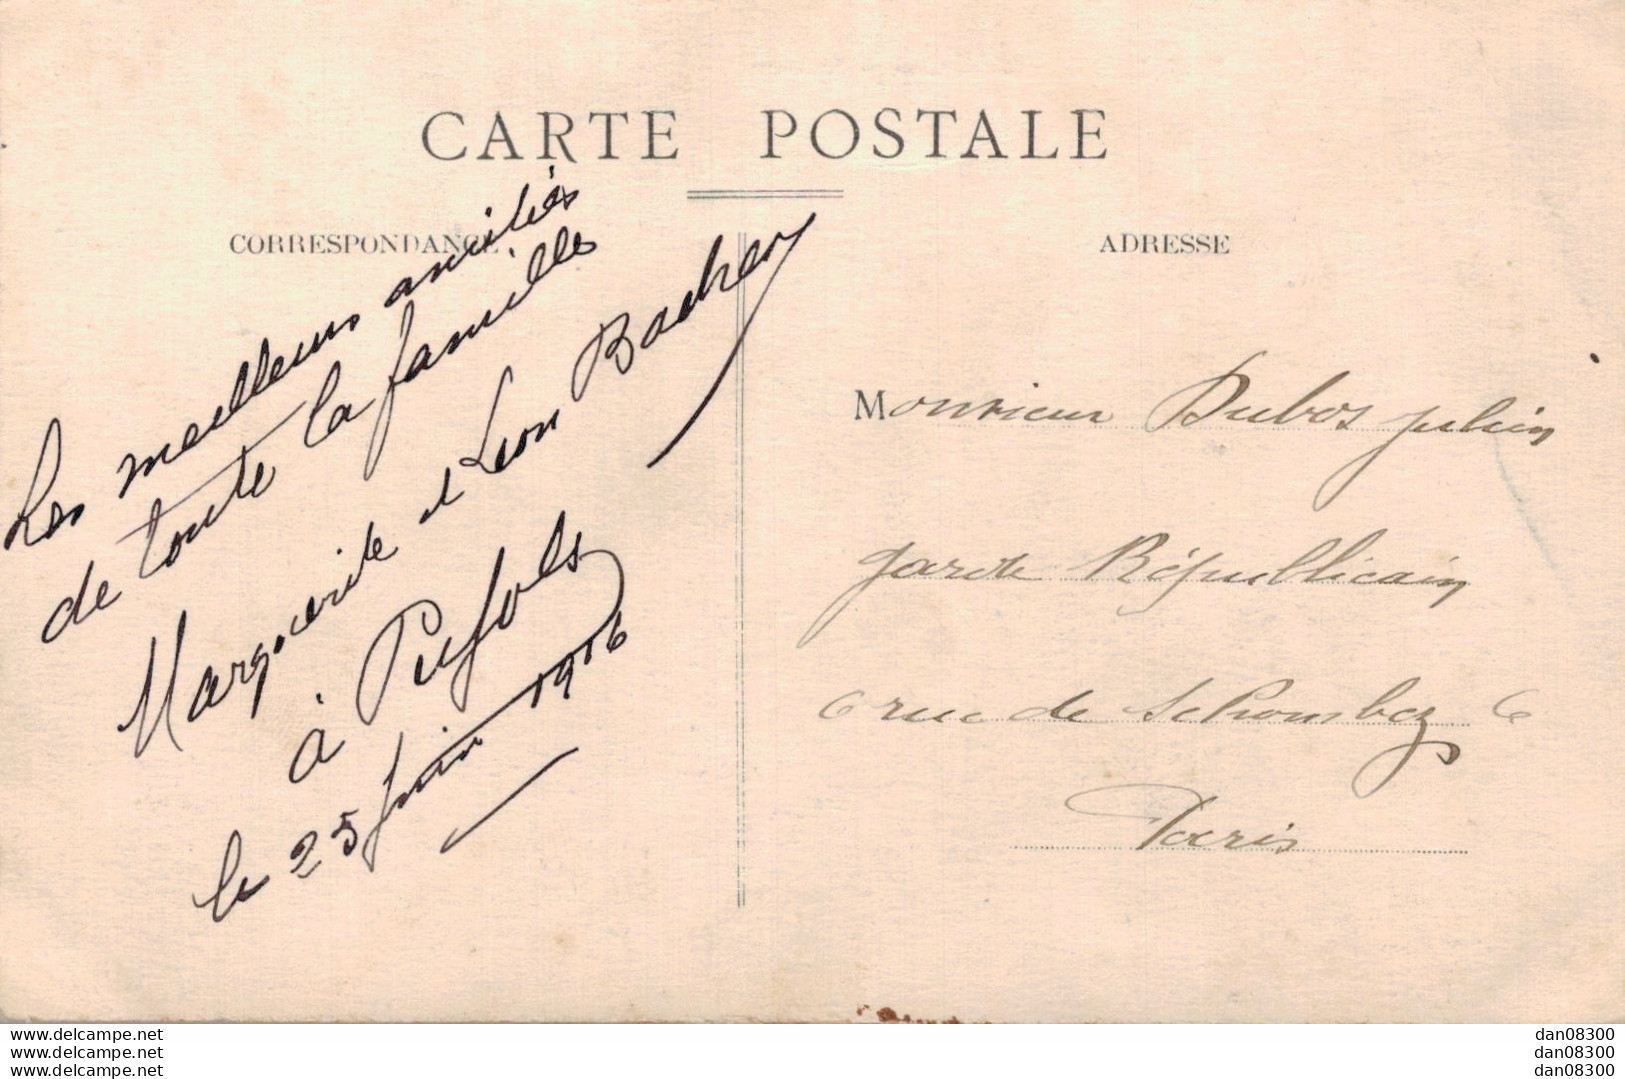 CARTE POSTALE
CORRESPONDANCE
ADRESSE
Les meilleurs amitiés
de toute la famille
Marguerite et Leon
à
le 25 juin 1916
Monsieur Dubos Julien
garde Républicain
6 rue de Schombez 6
Paris
www.delcampe.net
www.delcampe.net
www.delcampe.net
dan08300
dan08300
dan08300